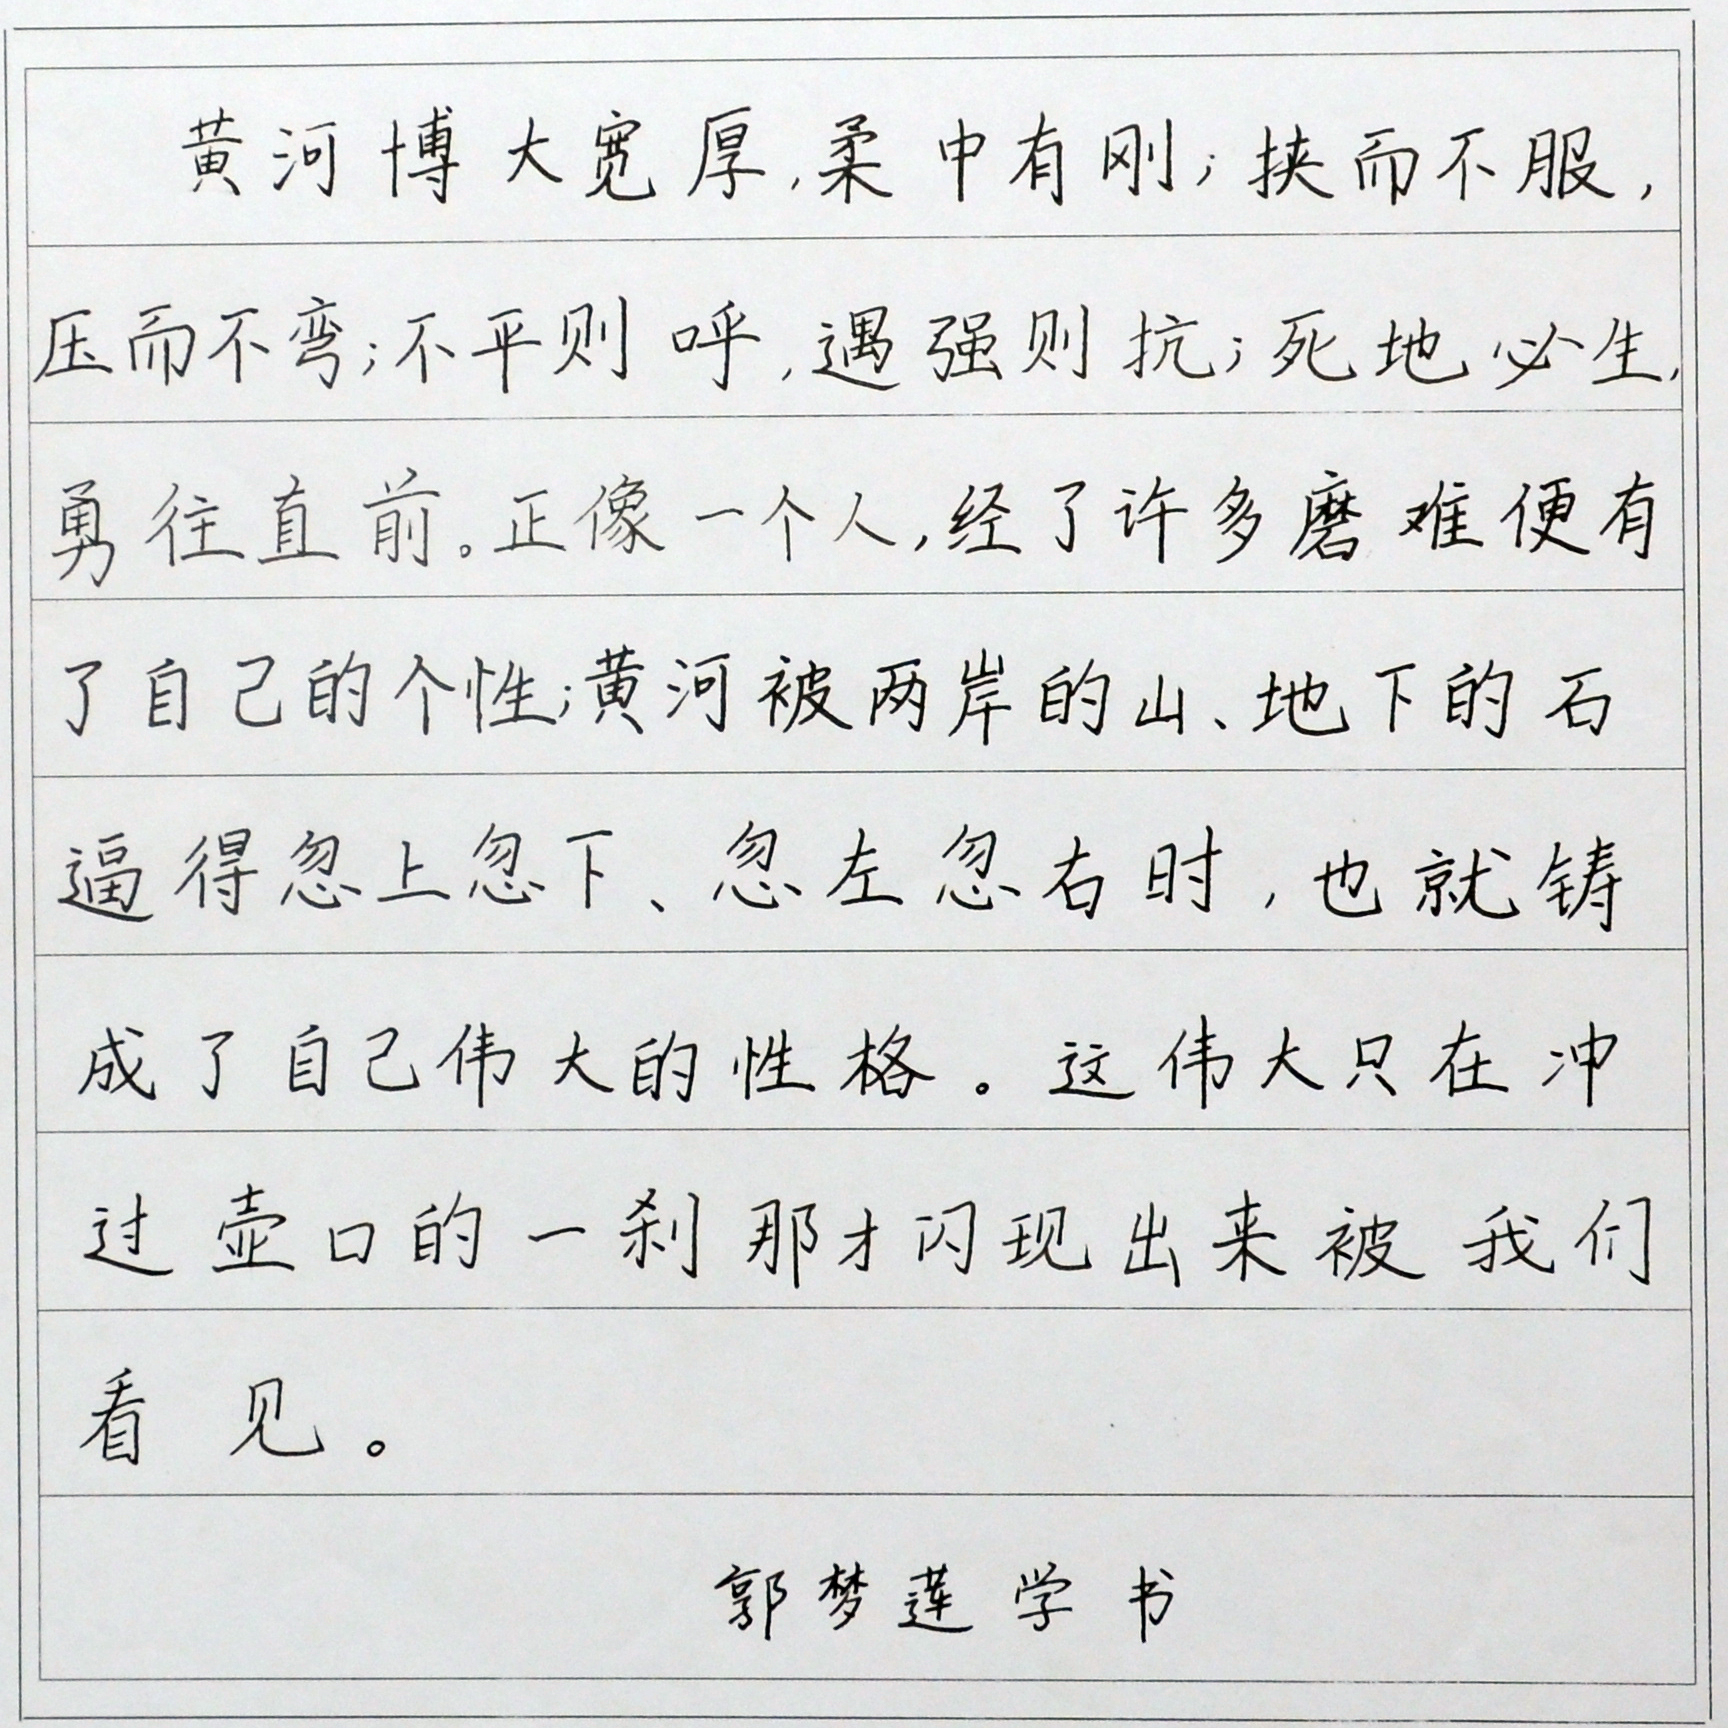 黄河博大宽厚,柔中有刚;挟而不服,
压而不弯;不平则呼,遇强则抗;死地必生,
勇往直前。正像一个人,经了许多磨难便有
了自己的个性;黄河被两岸的山、地下的石
逼得忽上忽下、忽左忽右时,也就铸
成了自己伟大的性格。这伟大只在冲
过壶口的一刹那才闪现出来被我们
看见。
郭梦莲学书